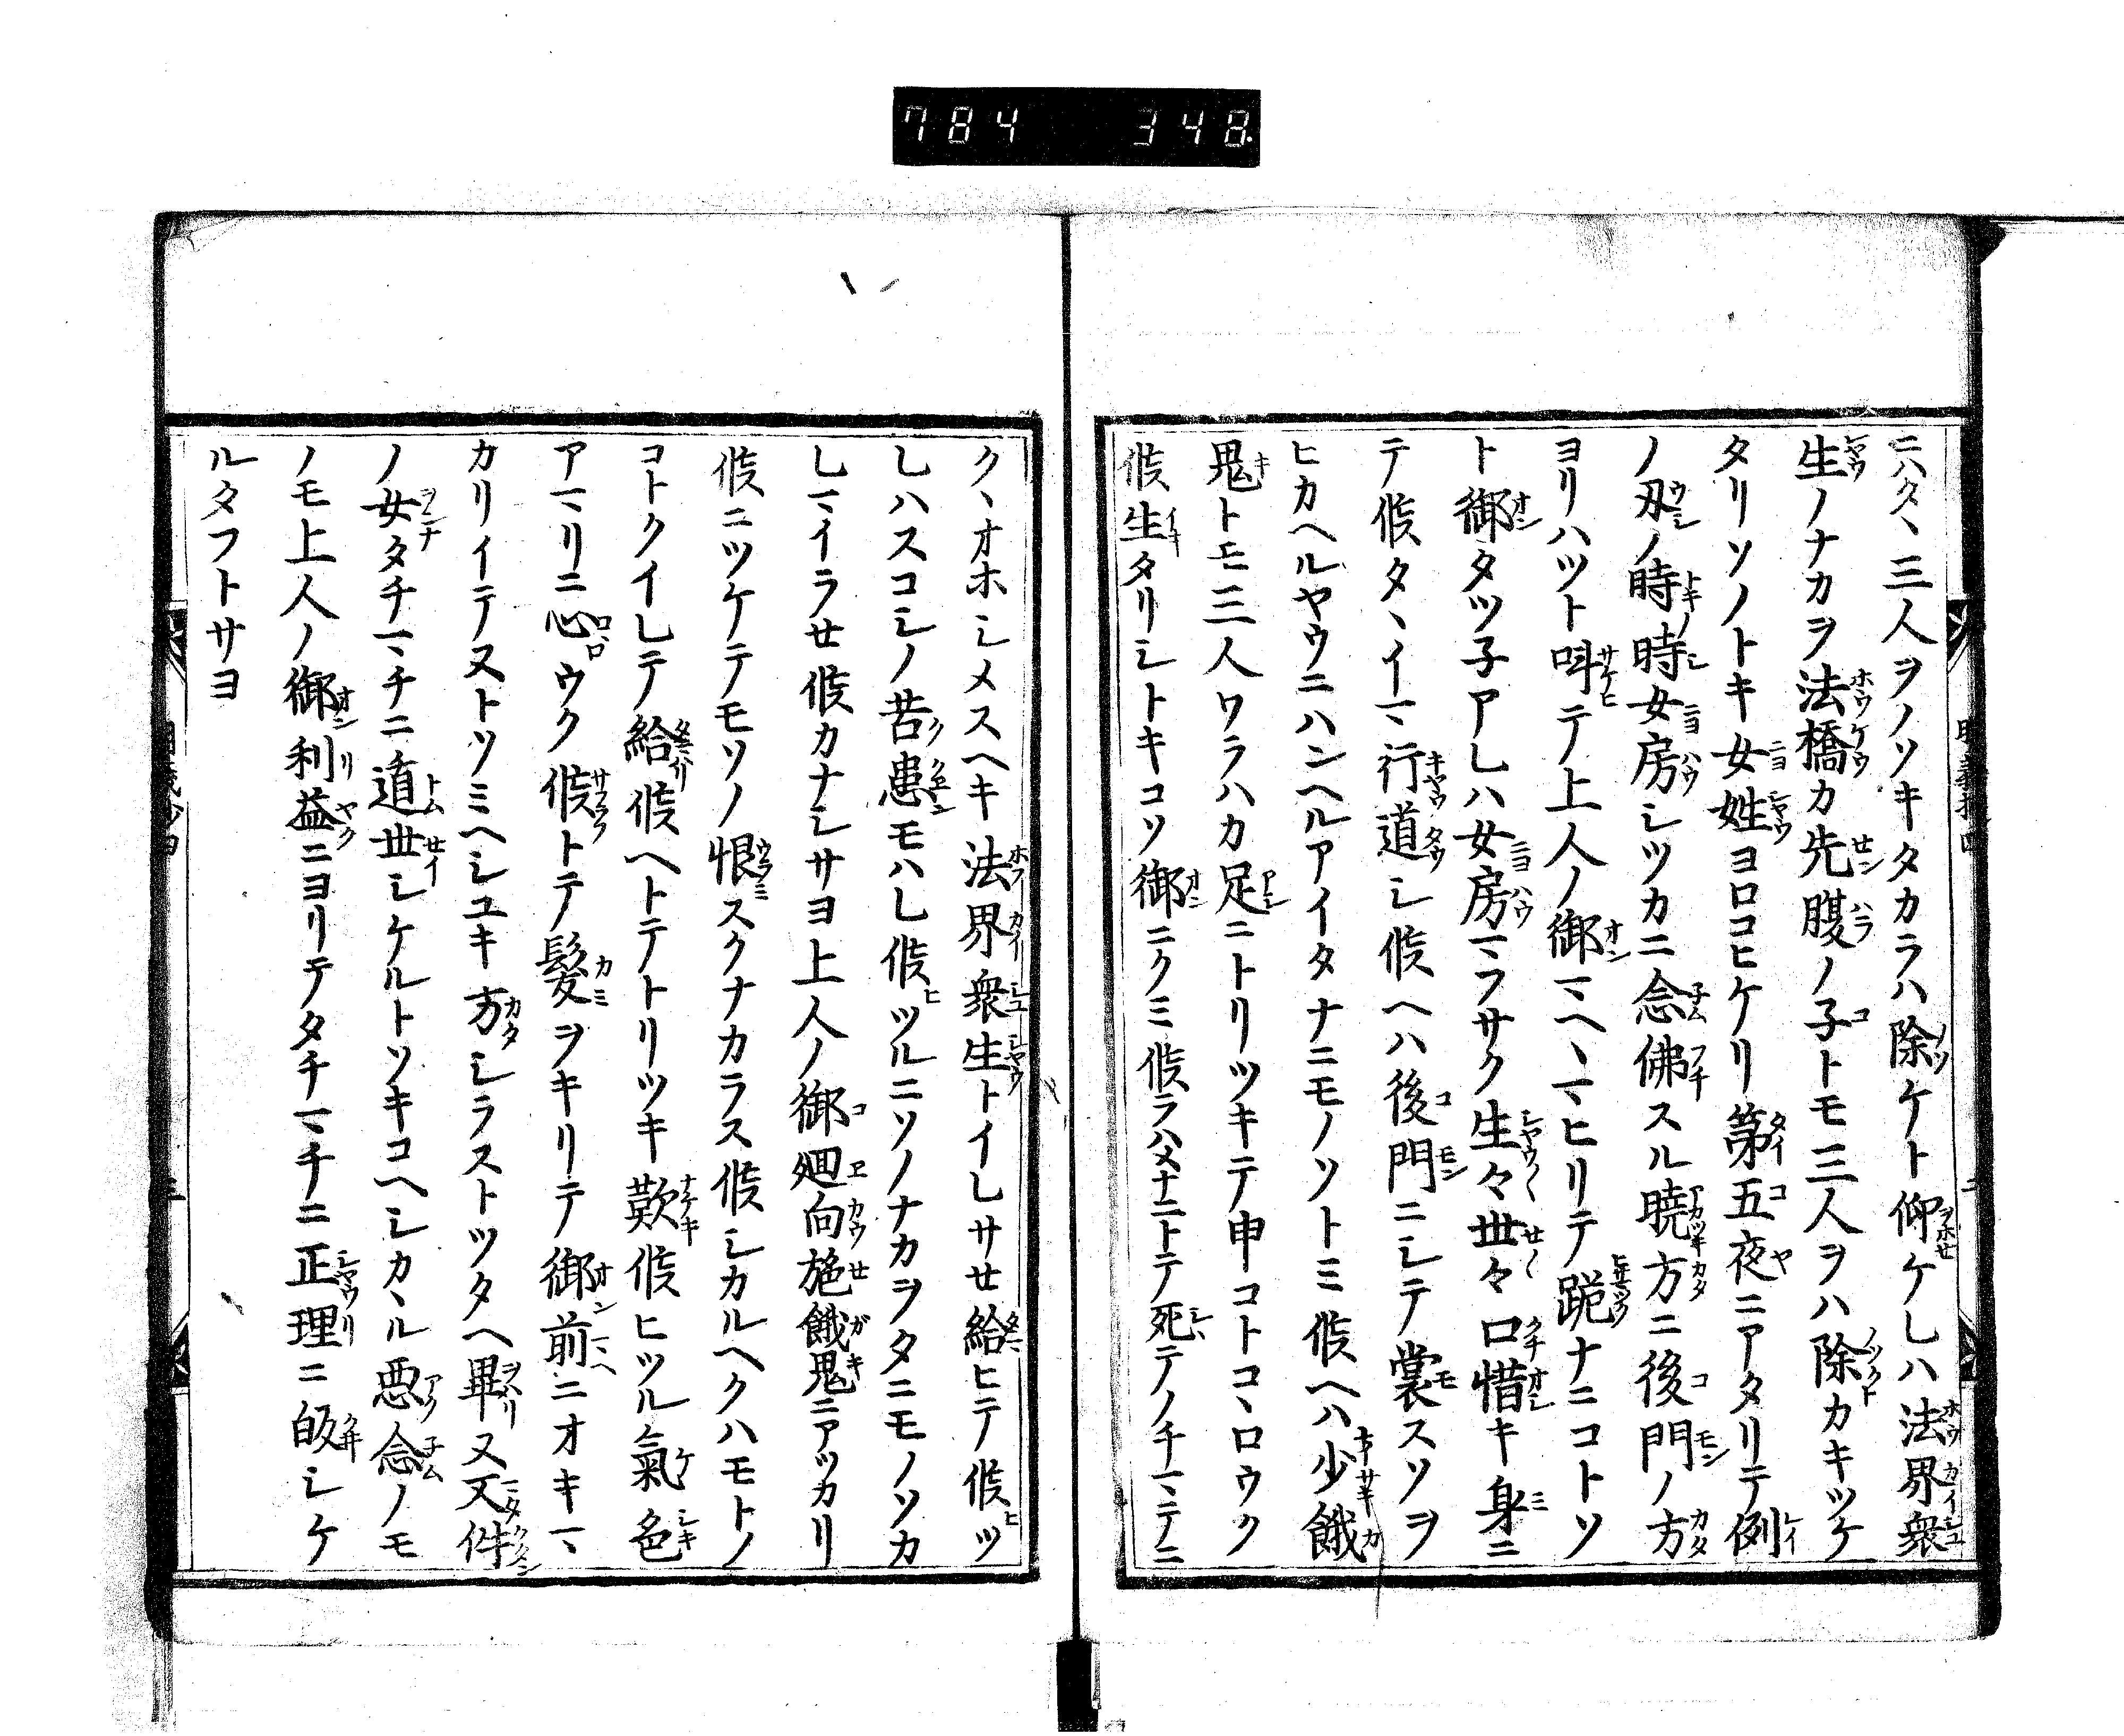 784 348
ニハク、三人ヲノソキタカラハ除ケト仰ケレハ法界衆
生ノナカヲ法橋カ先腹ノ子トモ三人ヲハ除カキツケ
タリソノトキ女姓ヨロコヒケリ第五夜ニアタリテ例
ノ丑ノ時時女房シツカニ念佛スル曉方ニ後門ノ方
ヨリハツト呌テ上人ノ御マヘヽマヒリテ跪ナニコトソ
ト御タツ子アレハ女房マフサク生々丗々口惜キ身ニ
テ候タヽイマ行道シ候ヘハ後門ニシテ裳スソヲ
ヒカヘルヤウニハンヘルアイタナニモノソトミ候ヘハ少餓
鬼トモ三人ワラハカ足ニトリツキテ申コトコヽロウク
候生タリシトキコソ御ニクミ候ラハメナニトテ死テノチマテニ
クヽオホシメスヘキ法界衆生トイレサセ給ヒテ候ヒツ
レハスコシノ苦患モハレ候ヒツルニソノナカヲタニモノソカ
レマイラせ候カナシサヨ上人ノ御廻向施餓鬼ニアツカリ
候ニツケテモソノ恨スクナカラス候シカルヘクハモトノ
コトクイレテ給候ヘトテトリツキ歎候ヒツル氣色
アマリニ心ウク候トテ髮ヲキリテ御前ニオキマ
カリイテヌトツミヘシユキ方シラストツタヘ畢又又件
ノ女タチマチニ遁丗シケルトソキコヘシカヽル惡念ノモ
ノモ上人ノ御利益ニヨリテタチマチニ正理ニ皈シケ
ルタフトサヨ